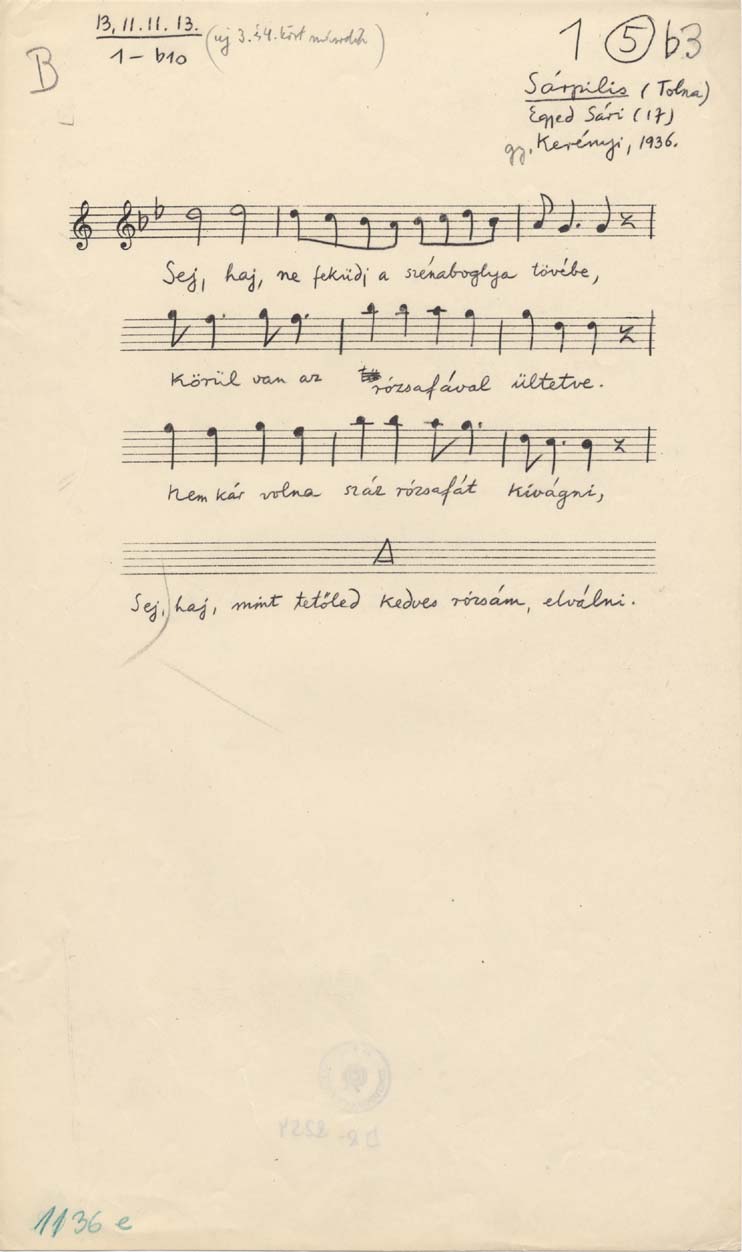 13, 11. 11. 13.
1 – b10
B
(uj 3. s 4. kört
1 5 b3
Sárpilis (Tolna)
Egyed Sári (17)
gy. Kerényi, 1936.
Sej, haj, ne feküdj a szénaboglya tövébe,
Körül van az rózsafával ültetve.
Nem kár volna száz rózsafát kivágni,
A
Sej, haj, mint tetőled kedves rózsám, elválni.
1136 e